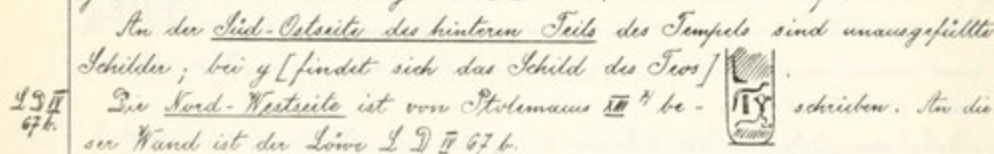 An der Süd-Ostseite des hinteren Teils des Tempels sind unausgefüllte
Schilder; bei y [findet sich das Schild des Teos]
LD IV 67 b.
Die Nord-Westseite ist von Ptolemaeus XIII be- schrieben. An die
ser Wand ist der Löwe L D IV 67 b.